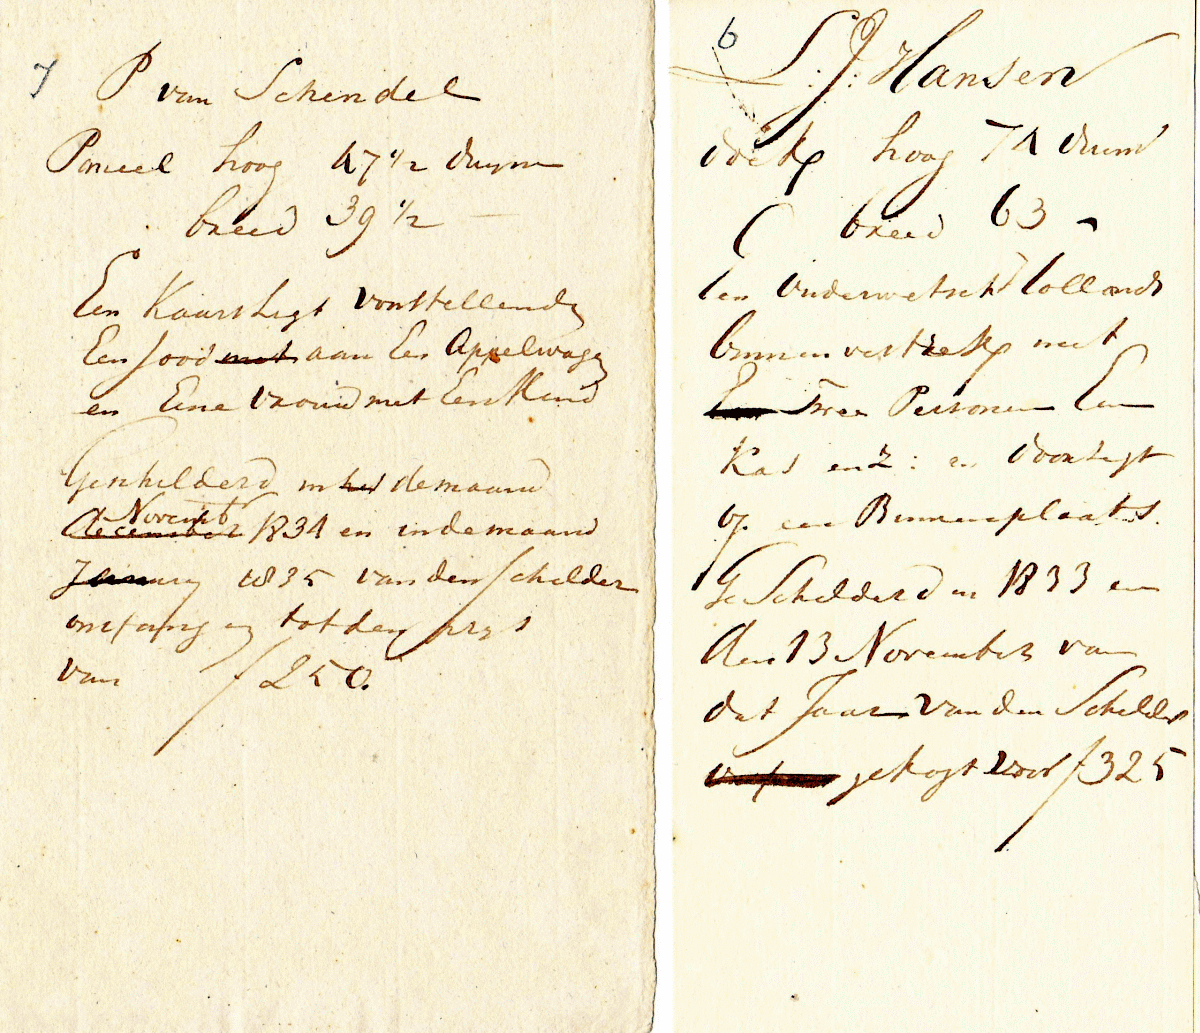 7
P van Schendel
Paneel hoog 47 1/2 duym
breed 39 1/2 —
Een Kaarsligt voorstellende
Een Jood met aan Een Appelwage
en Eene Vrouw met Een Kind
Geschilderd in het de maand
Novemb
december 1834 en in de maand
January 1835 van den schilder
ontfangen tot den prys
van f 250.
6
L. J. Hansen
doek hoog 74 duim
breed 63 -
Een ouderwetsch Hollands
binnenvertrek met
Een Twee Personen Een
Kas enz: en doorligt
op een Binnenplaats.
Geschilderd in 1833 en
den 13 November van
dat Jaar van den Schilder
gekogt voor f 325